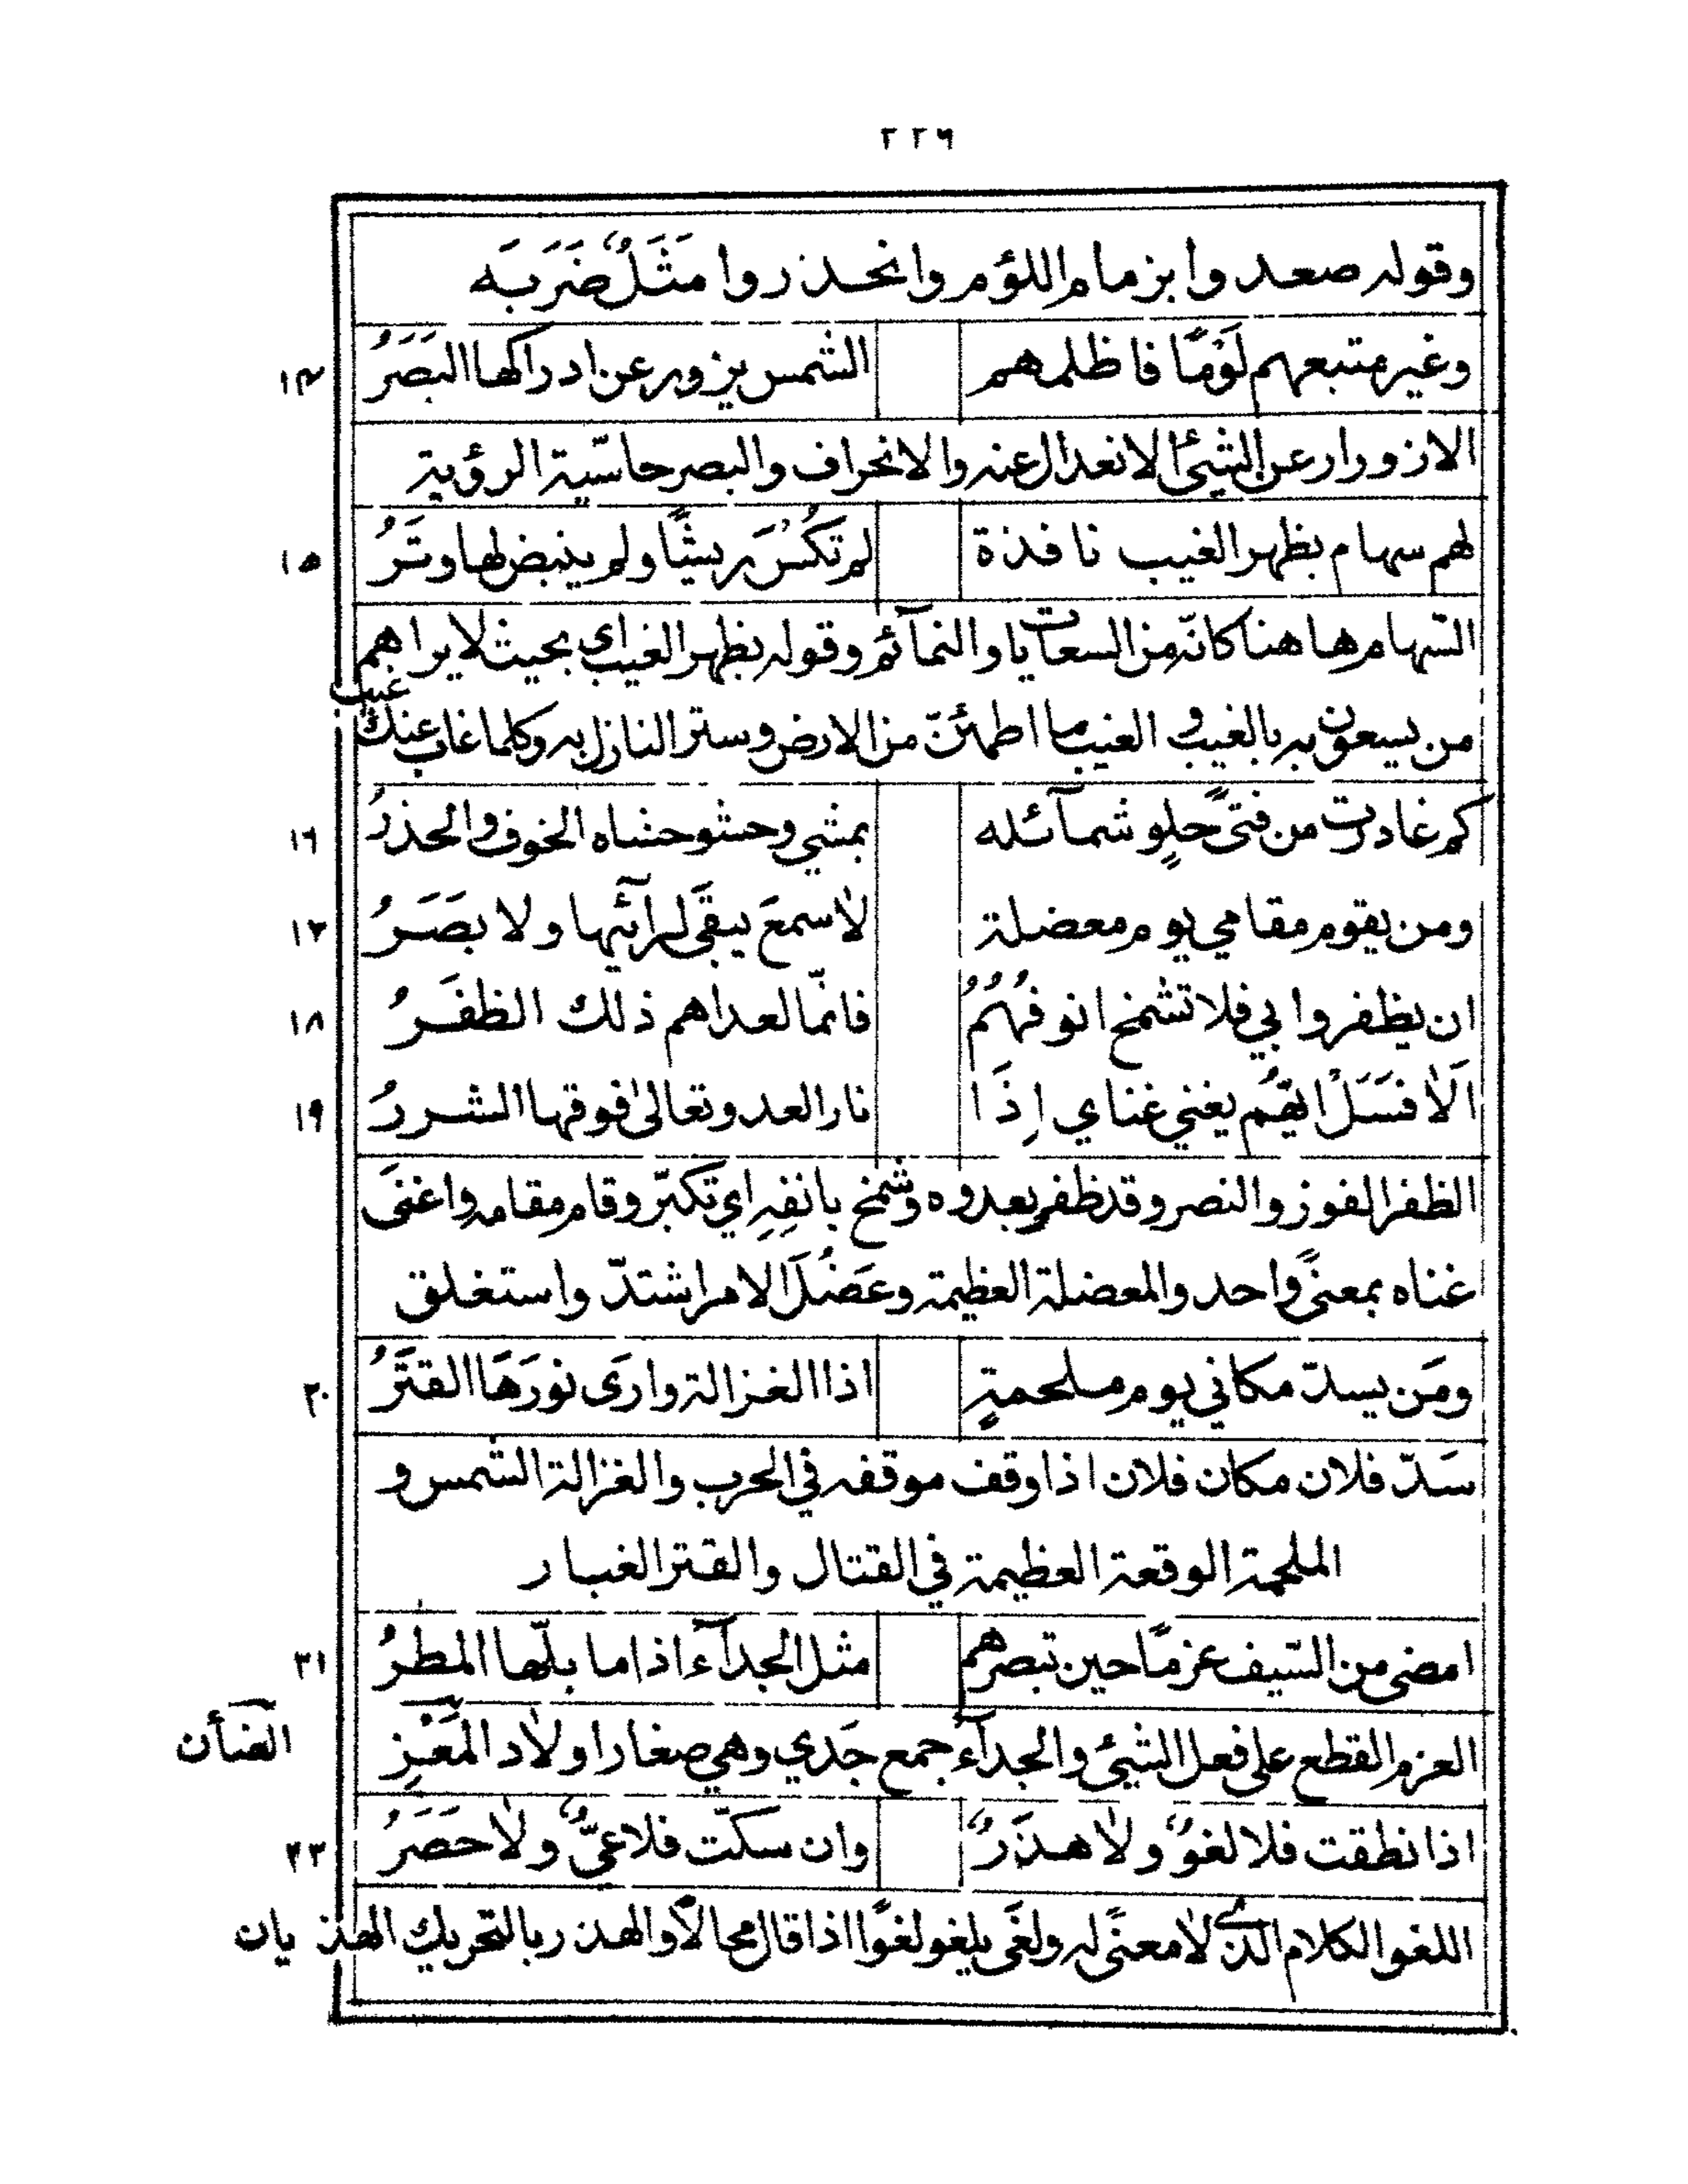 ٢٢٦
وقوله صعدوا بزمام اللؤم وانحذروا مَثَلٌ ضَرَبَه
وغير متبعهم لَوْمًا فاظلمهم الشمس يزور عن ادراكها البَصَرُ ١٤
الازورار عن الشيئ الانعدال عنه والانحراف والبصر حاسّية الرؤية
لهم سهام بظهر الغيب نافذة لم تكْسَ ريشًا ولم ينبض لها وتَرُ ١٥
السّهام هاهنا كانّه من السعايات والنمآئم وقوله بظهر الغيب اي بحيث لا يراهم
من يسعون به بالغيب و الغيب ما اطمئنّ من الارض وستر النازل به وكلما غاب عنك غيب
كم غادرت من فتىً حلوٍ شمآئله بمشي وحشو حشاه الخوف والحذرُ ١٦
ومن يقوم مقامي يوم معضلة لا سمعَ يبقَى لرآئيها ولا بصَرُ ١٧
ان يظفروا بي فلا تشمخ انوفُهُمُ فانّما لعداهم ذلك الظفَرُ ١٨
اَلَا فسَلْ ايّهُم يغني غناي اِذَا نار العدو تعالىٰ فوقها الشررُ ١٩
الظفر الفوز والنصر وقد ظفر بعدوه وشمخ بانفِهِ اي تكبّر وقام مقامه واغنَى
غناه بمعنًى واحد والمعضلة العظيمة وعَضُلَ الامر اشتدّ واستغلق
ومَن يسدّ مكاني يوم ملحمةٍ اذا الغزالة وارَى نورَهَا القتَرُ ٢٠
سَدّ فلان مكان فلان اذا وقف موقفه في الحرب والغزالة الشمس و
الملحمة الوقعة العظيمة في القتال والقتر الغبار
امضى من السّيف عزمًا حين تبصرهم مثل الجدآء اذا ما بلّها المطرُ ٢١
العزم القطع على فعل الشيئ والجدآء جمع جَدي وهي صغار اولاد المَعْزِ الضأن
اذا نطقت فلا لغوٌ ولا هذَرٌ وان سكتّ فلا عيٌّ ولا حَصَرُ ٢٢
اللغو الكلام الذي لا معنًى له ولغَى يلغو لغوًا اذا قال محالًا والهذر بالتحريك الهذيان